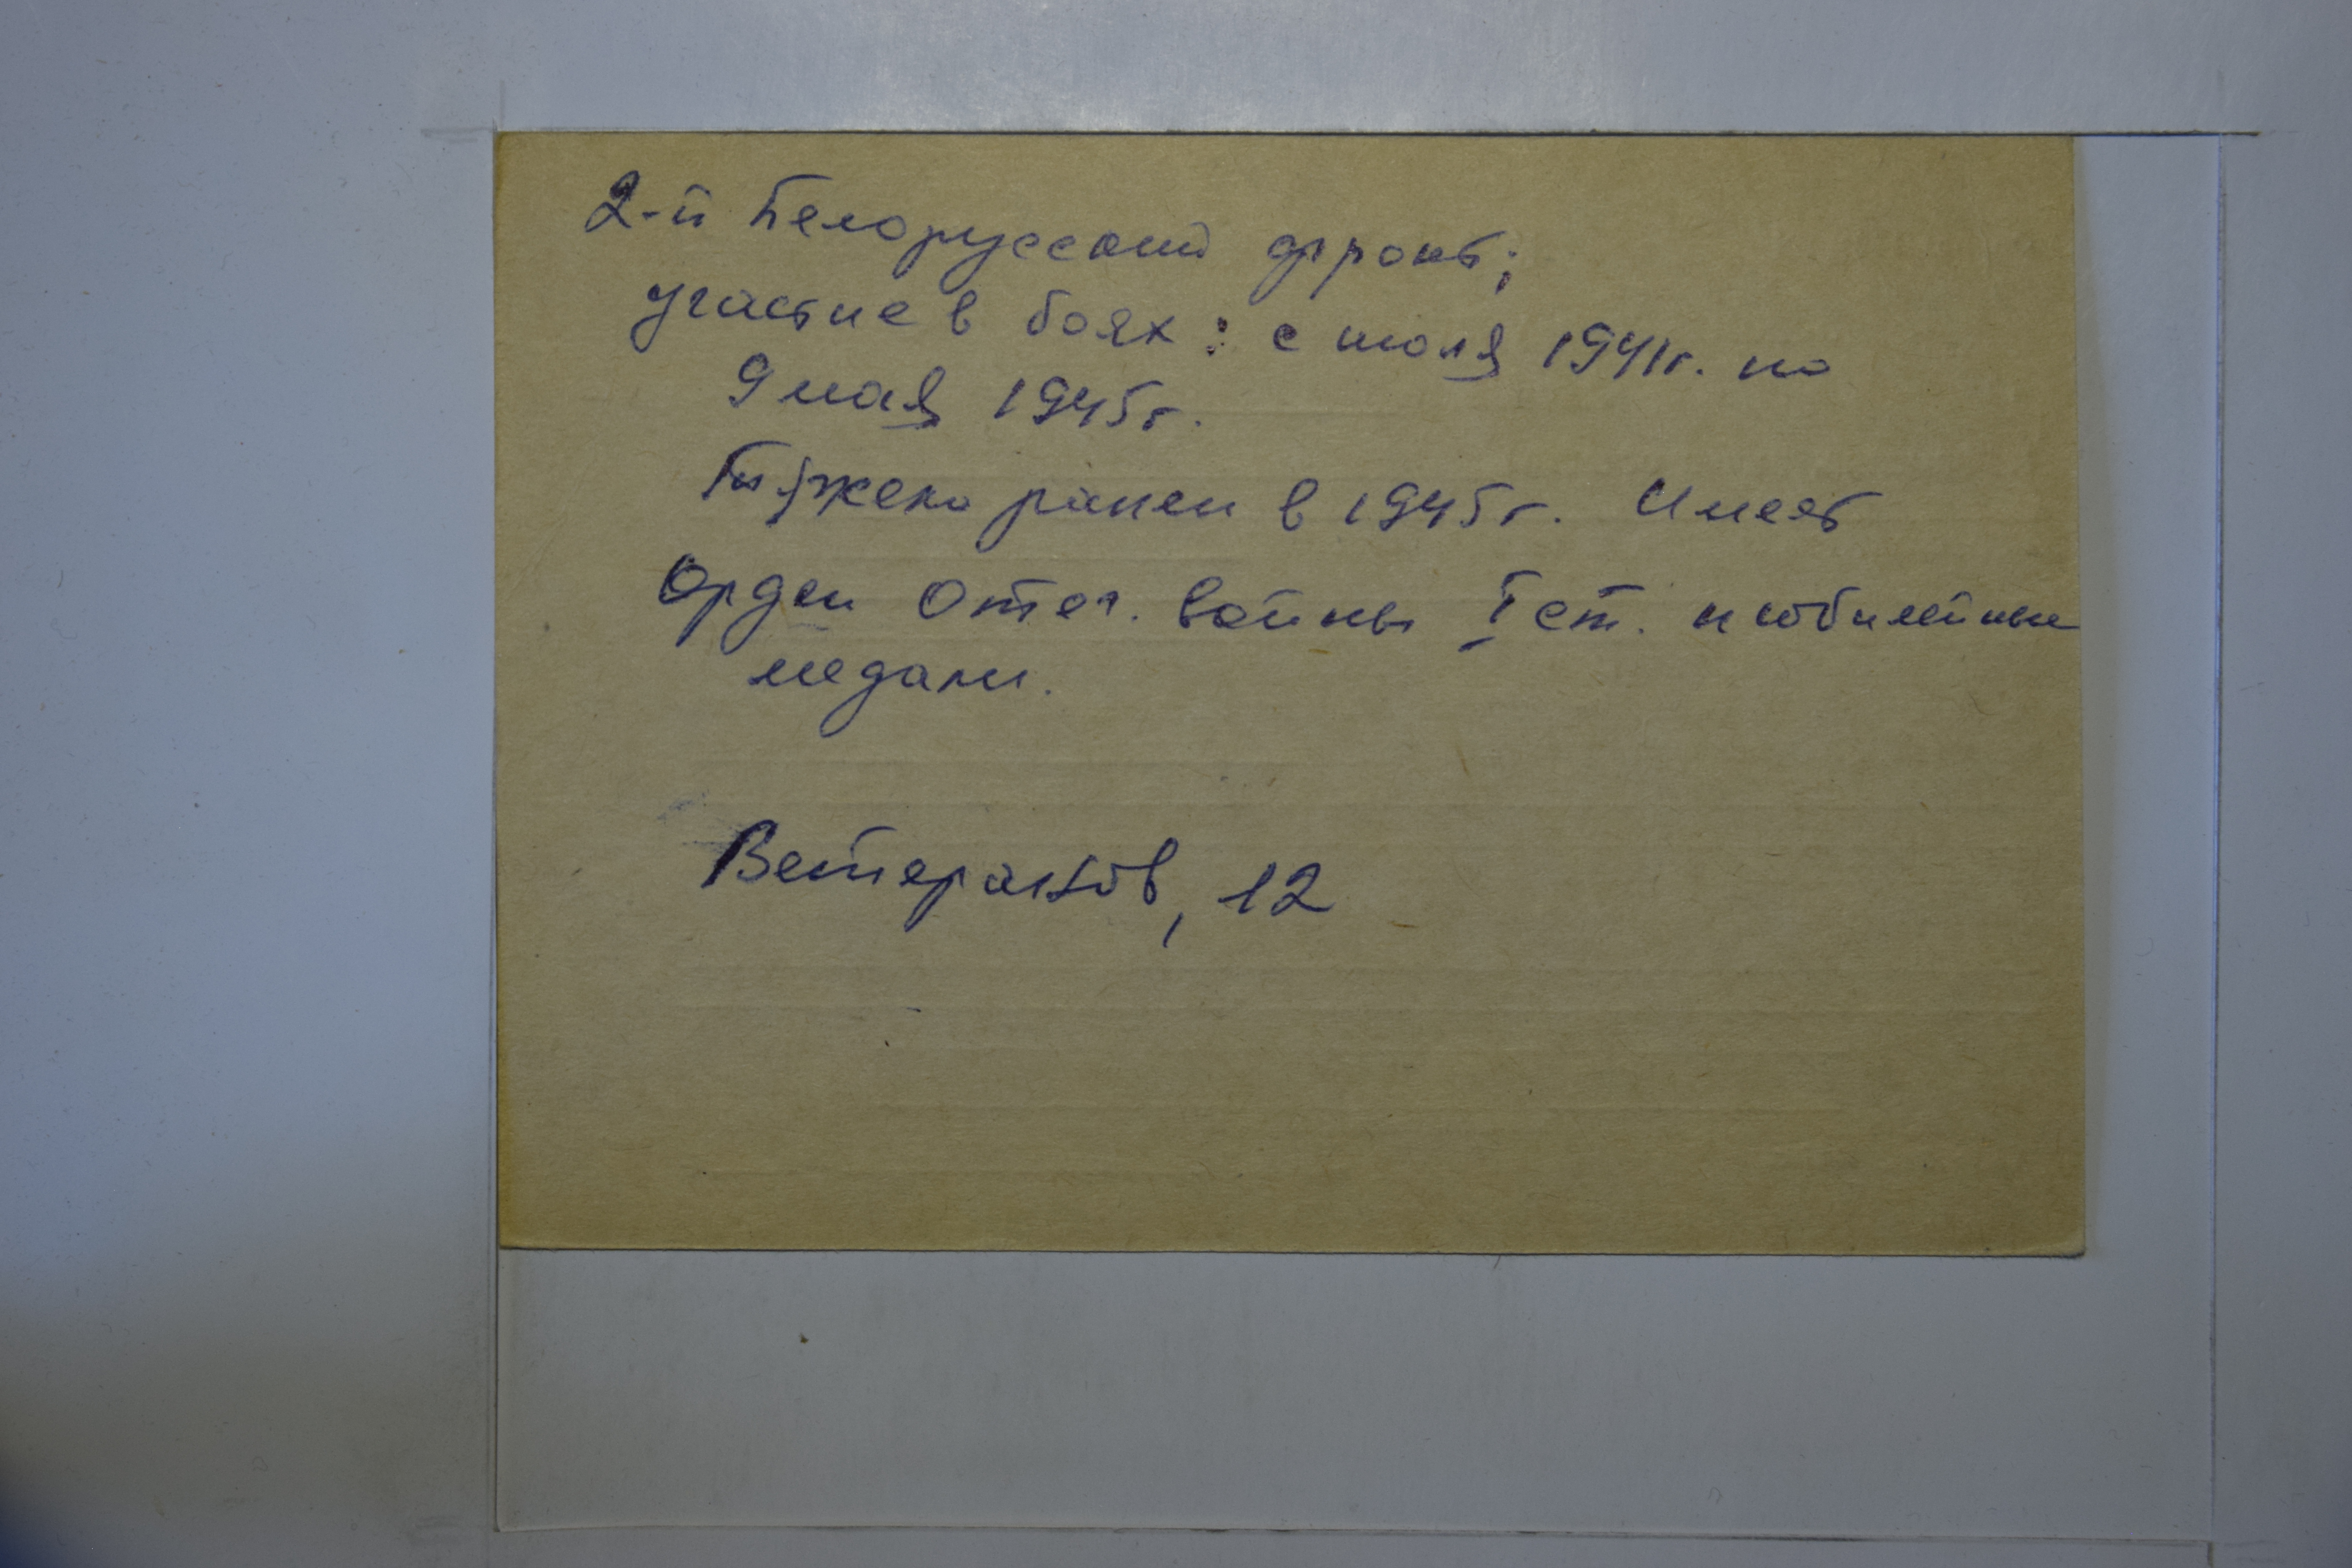 2-й Белорусский фронт;
участие в боях: с июля 1941г. по
9 мая 1945г.
Тяжело ранен в 1945г. Имеет
Орден Отеч. войны I ст. и юбилейные
медали.
Ветеранов, 12